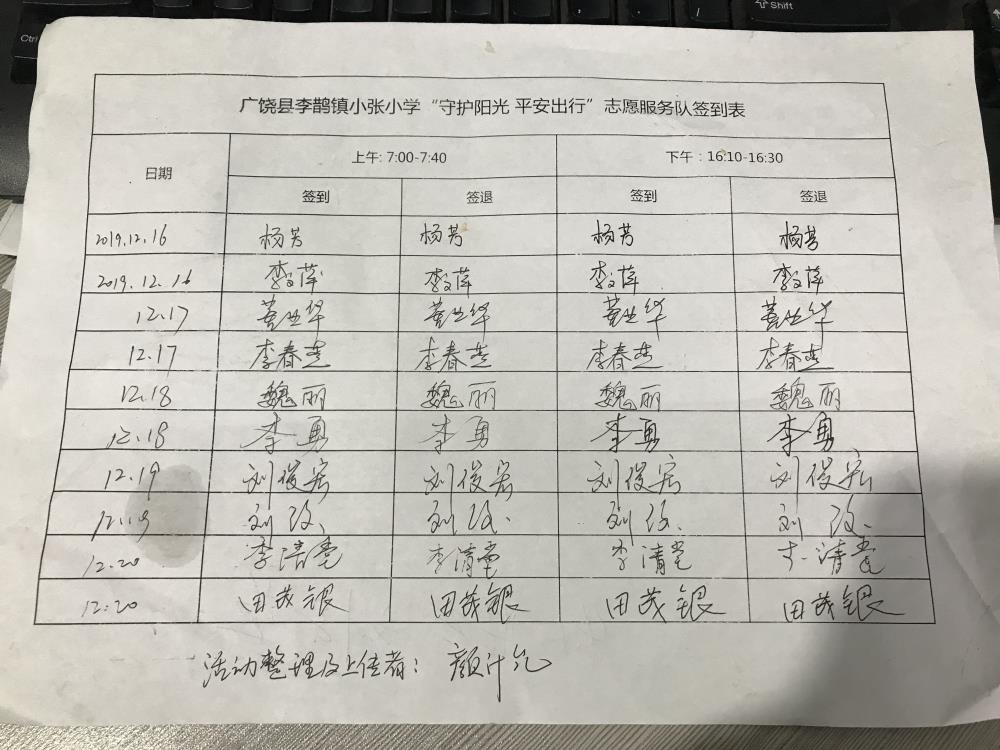 广饶县李鹊镇小张小学“守护阳光 平安出行”志愿服务队签到表
日期 上午: 7:00-7:40 下午：16:10-16:30
签到 签退 签到 签退
2019.12.16 杨芳 杨芳 杨芳 杨芳
2019.12.16 李文萍 李文萍 李文萍 李文萍
12.17 董业华 董业华 董业华 董业华
12.17 李春芝 李春芝 李春芝 李春芝
12.18 魏丽 魏丽 魏丽 魏丽
12.18 李勇 李勇 李勇 李勇
12.19 刘俊宏 刘俊宏 刘俊宏 刘俊宏
12.19 刘 刘 刘 刘
12.20 李清堂 李清堂 李清堂 李清堂
12.20 田茂银 田茂银 田茂银 田茂银
活动整理及上传者：颜
Ctrl
Shift